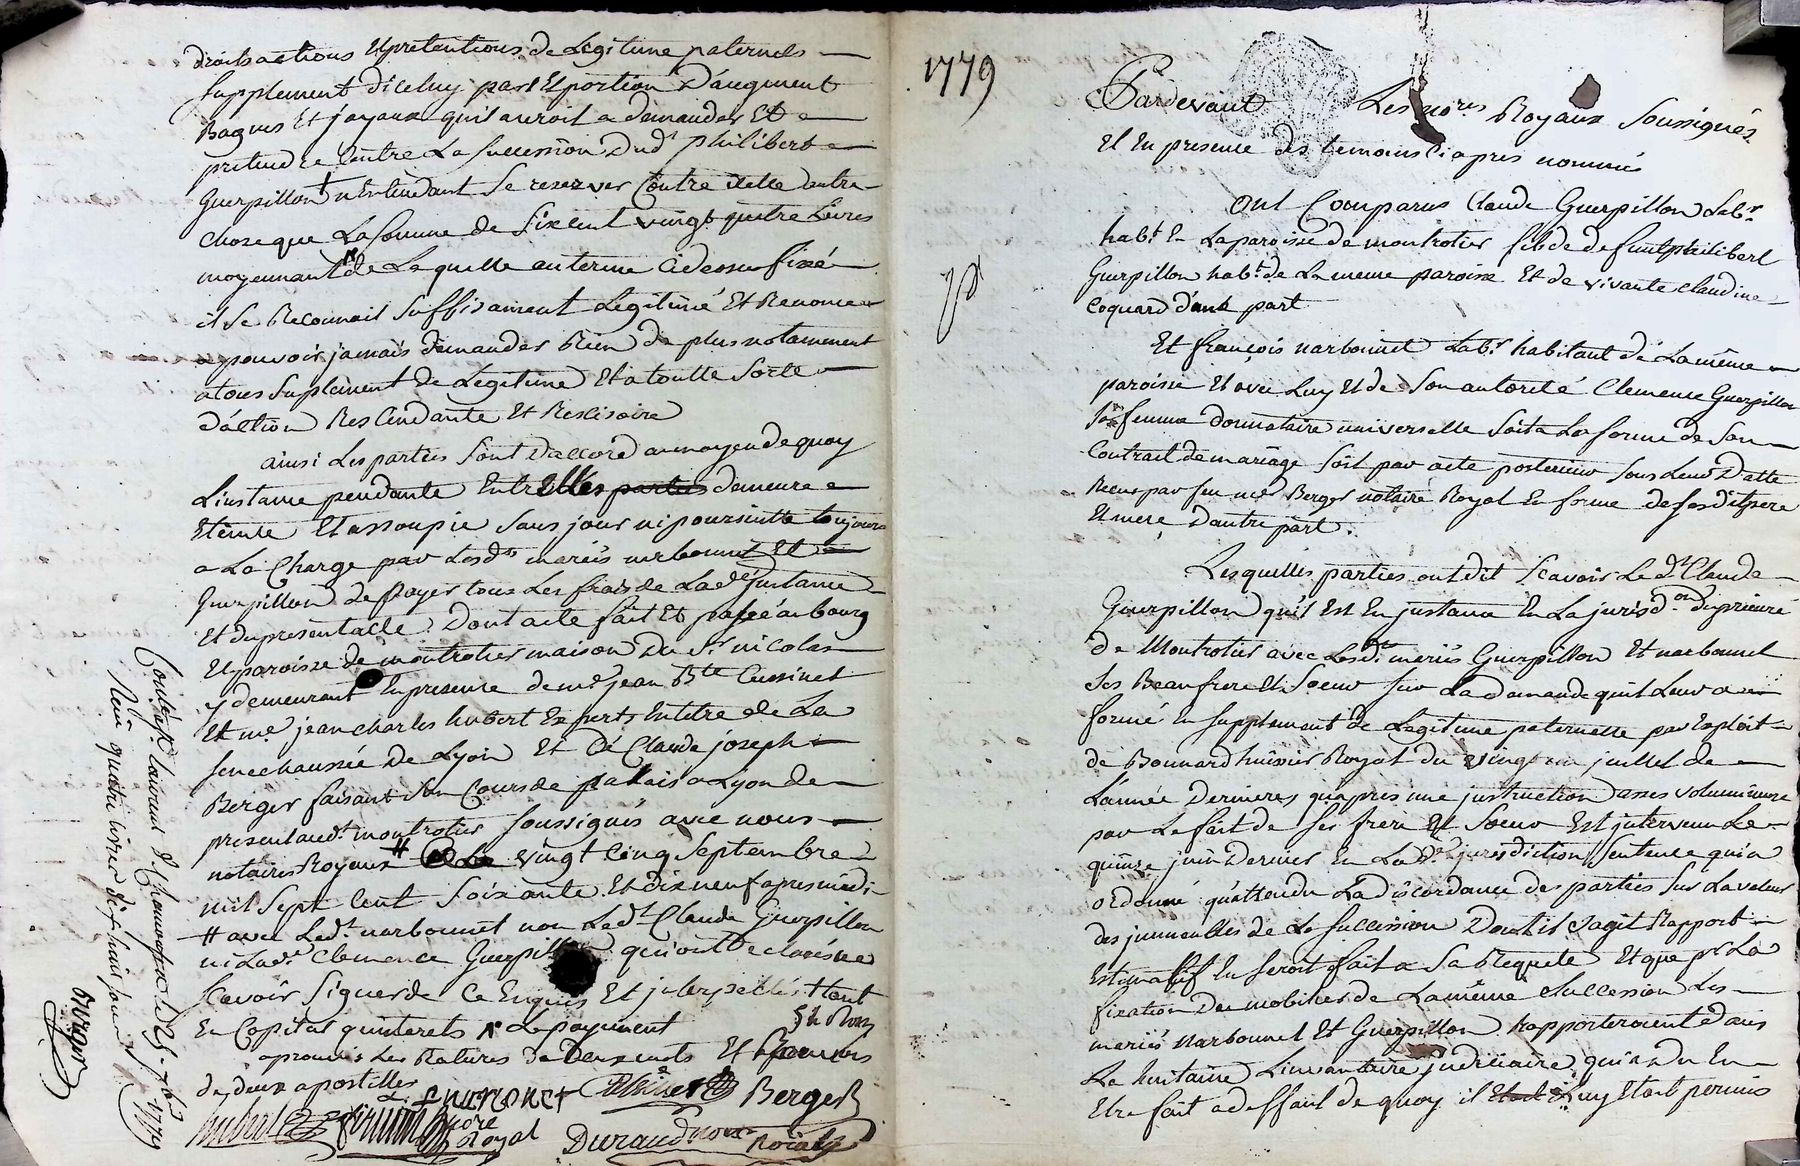 droits actions et pretentions de Legitime paternels
supplement diceluy part et portion D'augment
Bagues Et joyaux quil auroit a demander Et
pretendre Contre La succession Dud philibert
Guerpillon n'entendant se reserver Contre icelle autre
chose que La somme de six cent vingt quatre Livres
moyennant Laquelle au terme cidessus fixé
il se Reconnait suffisament Legitimé Et Renonce
a pouvoir jamais demander Rien de plus notamment
a tous suplement de Legitime Et a toutte sorte
d'action Rescindante Et Rescisoire
ainsi Les parties sont d'accord au moyen de quoy
L'instance pendante Entr'elles parties demeure
Eteinte Et assoupie sans jour ni poursuitte toujours
a La Charge par Lesdts mariés narbonnet Et
Guerpillon de payer tous Les frais de Lade instance
Et du present acte. Dont acte fait Et passé au bourg
Et paroisse de montrotier maison Du Sr nicolas
y demeurant En presence de me jean Bte Cussinet
Et me jean charles hubert Experts En titre de La
senechaussée de Lyon Et de Claude joseph
Berger faisant son Cours de palais a Lyon de
present audt montrotier soussignés avec nous
notaires Royaux # Ce Le vingt Cinq septembre
mil sept cent soixante Et dix neuf apres midi
# avec Ledt narbonnet non Ledt Claude Guerpillon
ni Lade Clemence Guerpillon qui ont declaré ne
scavoir signer de Ce Enquis Et interpellés + tant
En Capital qu'interets # Le payement
aprouvé Les Ratures de Deux mots Et
de deux apostilles
narbonet Berger
hubert nore Royal Durand nore Roial
Conté à St Laurent d. Chamousset Le 25 7bre 1779
Reçu quatre livres dix huit sous
1779
Pardevant Les nores Royaux soussignés
Et En presence des temoins Ciapres nommés
ont Comparus Claude Guerpillon Labr
habt En La paroisse de montrotier fils de defunt philibert
Guerpillon habt de La meme paroisse Et de vivante Claudine
Coquard d'une part
Et françois narbonnet Labr habitant de La même
paroisse Et avec Luy Et de son autorité Clemence Guerpillon
sa femme donnataire universelle soit a La forme de son
Contract de mariage soit par acte posterieur sous Leurs Datte
Recus par feu me Berger notaire Royal En forme de ses dits pere
Et mere D'autre part.
Lesquelles parties ont dit scavoir Le dt Claude
Guerpillon qu'il Est En instance En La jurisdon du prieuré
de Montrotier avec Lesdts mariés Guerpillon Et narbonnet
ses Beaufrere Et soeur sur La Demande quil Leur a
formé En supplement de Legitime paternelle par Exploit
de Bonnard huissier Royal du vingt un juillet de
L'année Derniere, qu'apres une instruction asses volumineuse
par Le fait de ses frere Et soeur Est intervenu Le
quinze juin Dernier En La de jurisdiction sentence qui a
ordonné qu'attendu La discordance des parties sur La valeur
des immeubles de La succession Dont il s'agit Rapport
Estimatif En seroit fait a sa Requete Et que pr La
fixation Du mobilier de La même succession Les
mariés Narbonnet Et Guerpillon rapporteroient Dans
La huitaine L'inventaire judiciaire, qui a du En
Etre fait a deffaut de quoy il Luy Etoit permis